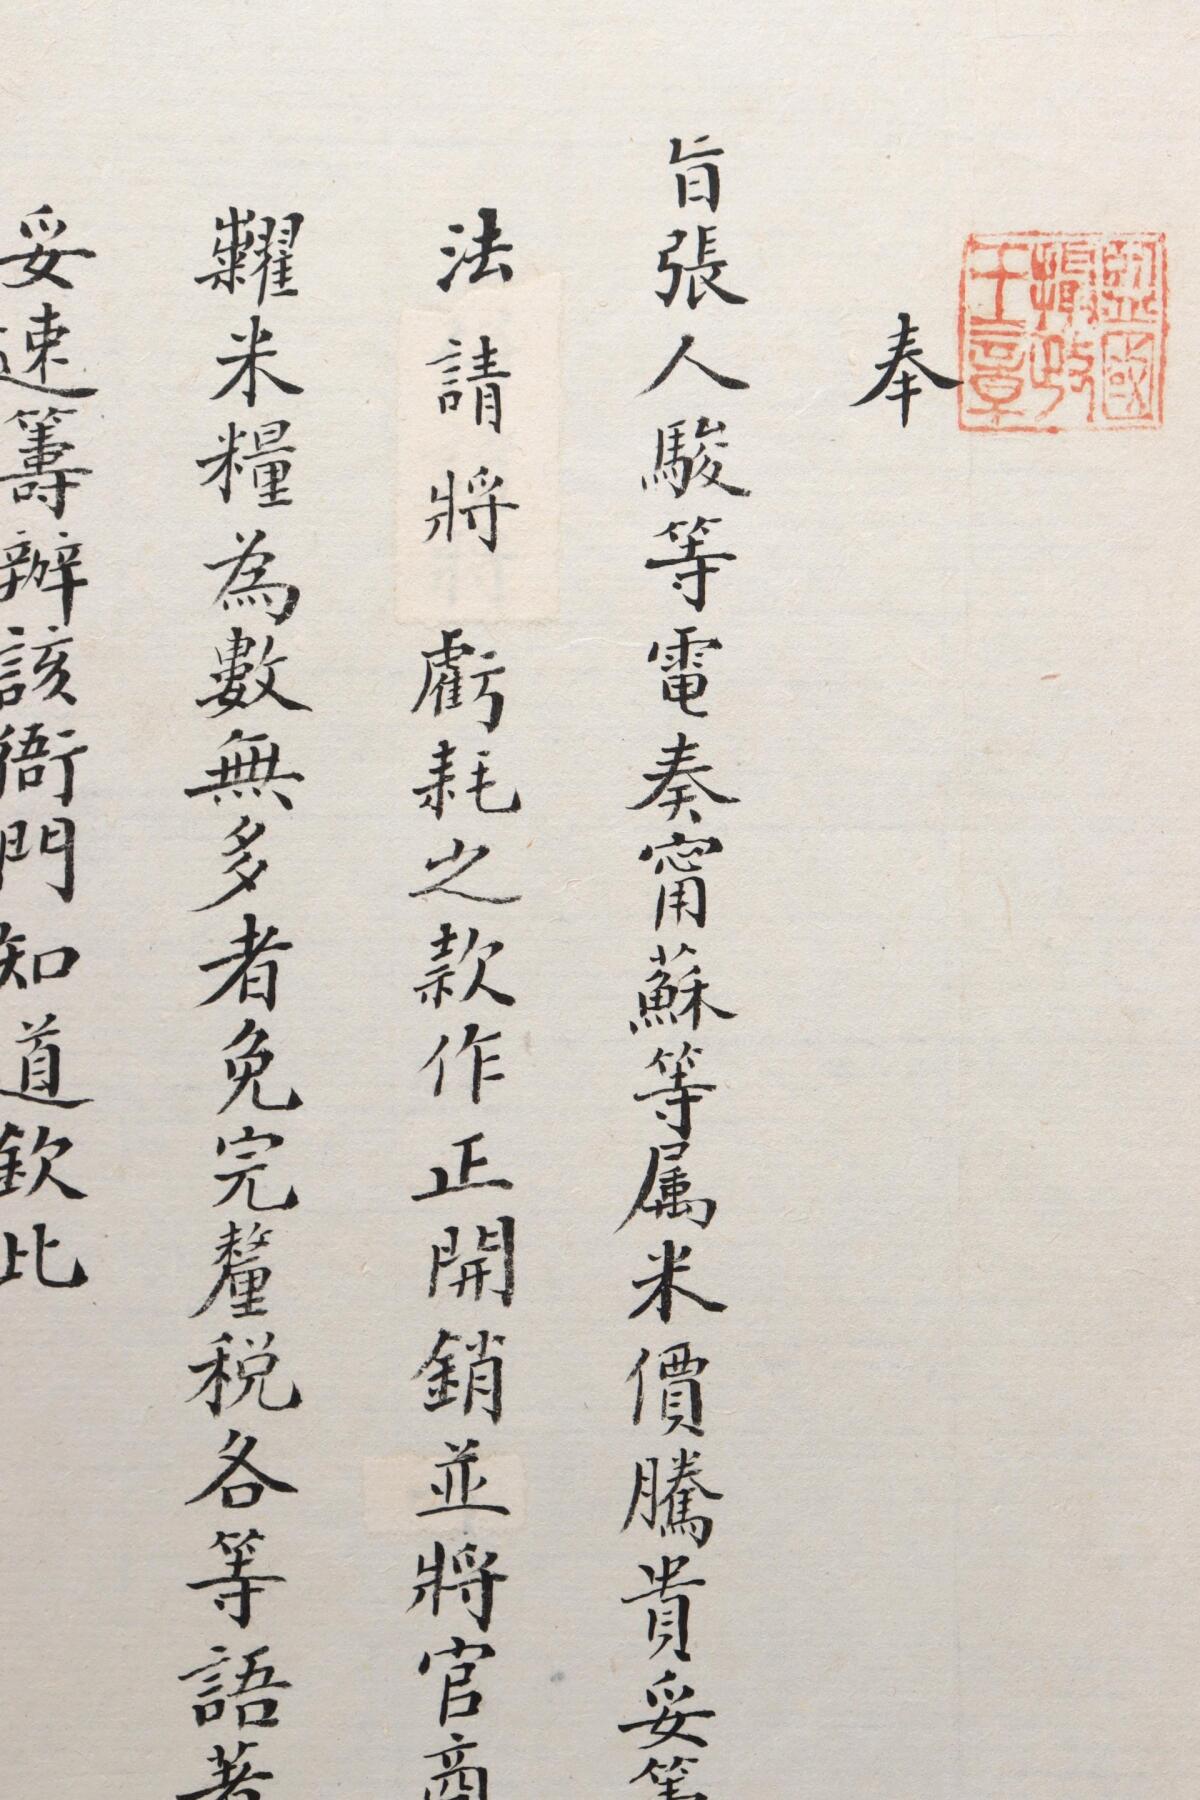 監國攝政王章
奉
旨張人駿等電奏甯蘇等属米價騰貴妥籌
法請將虧耗之款作正開銷並將官商
糶米糧為數無多者免完釐税各等語著
妥速籌辦該衙門知道欽此